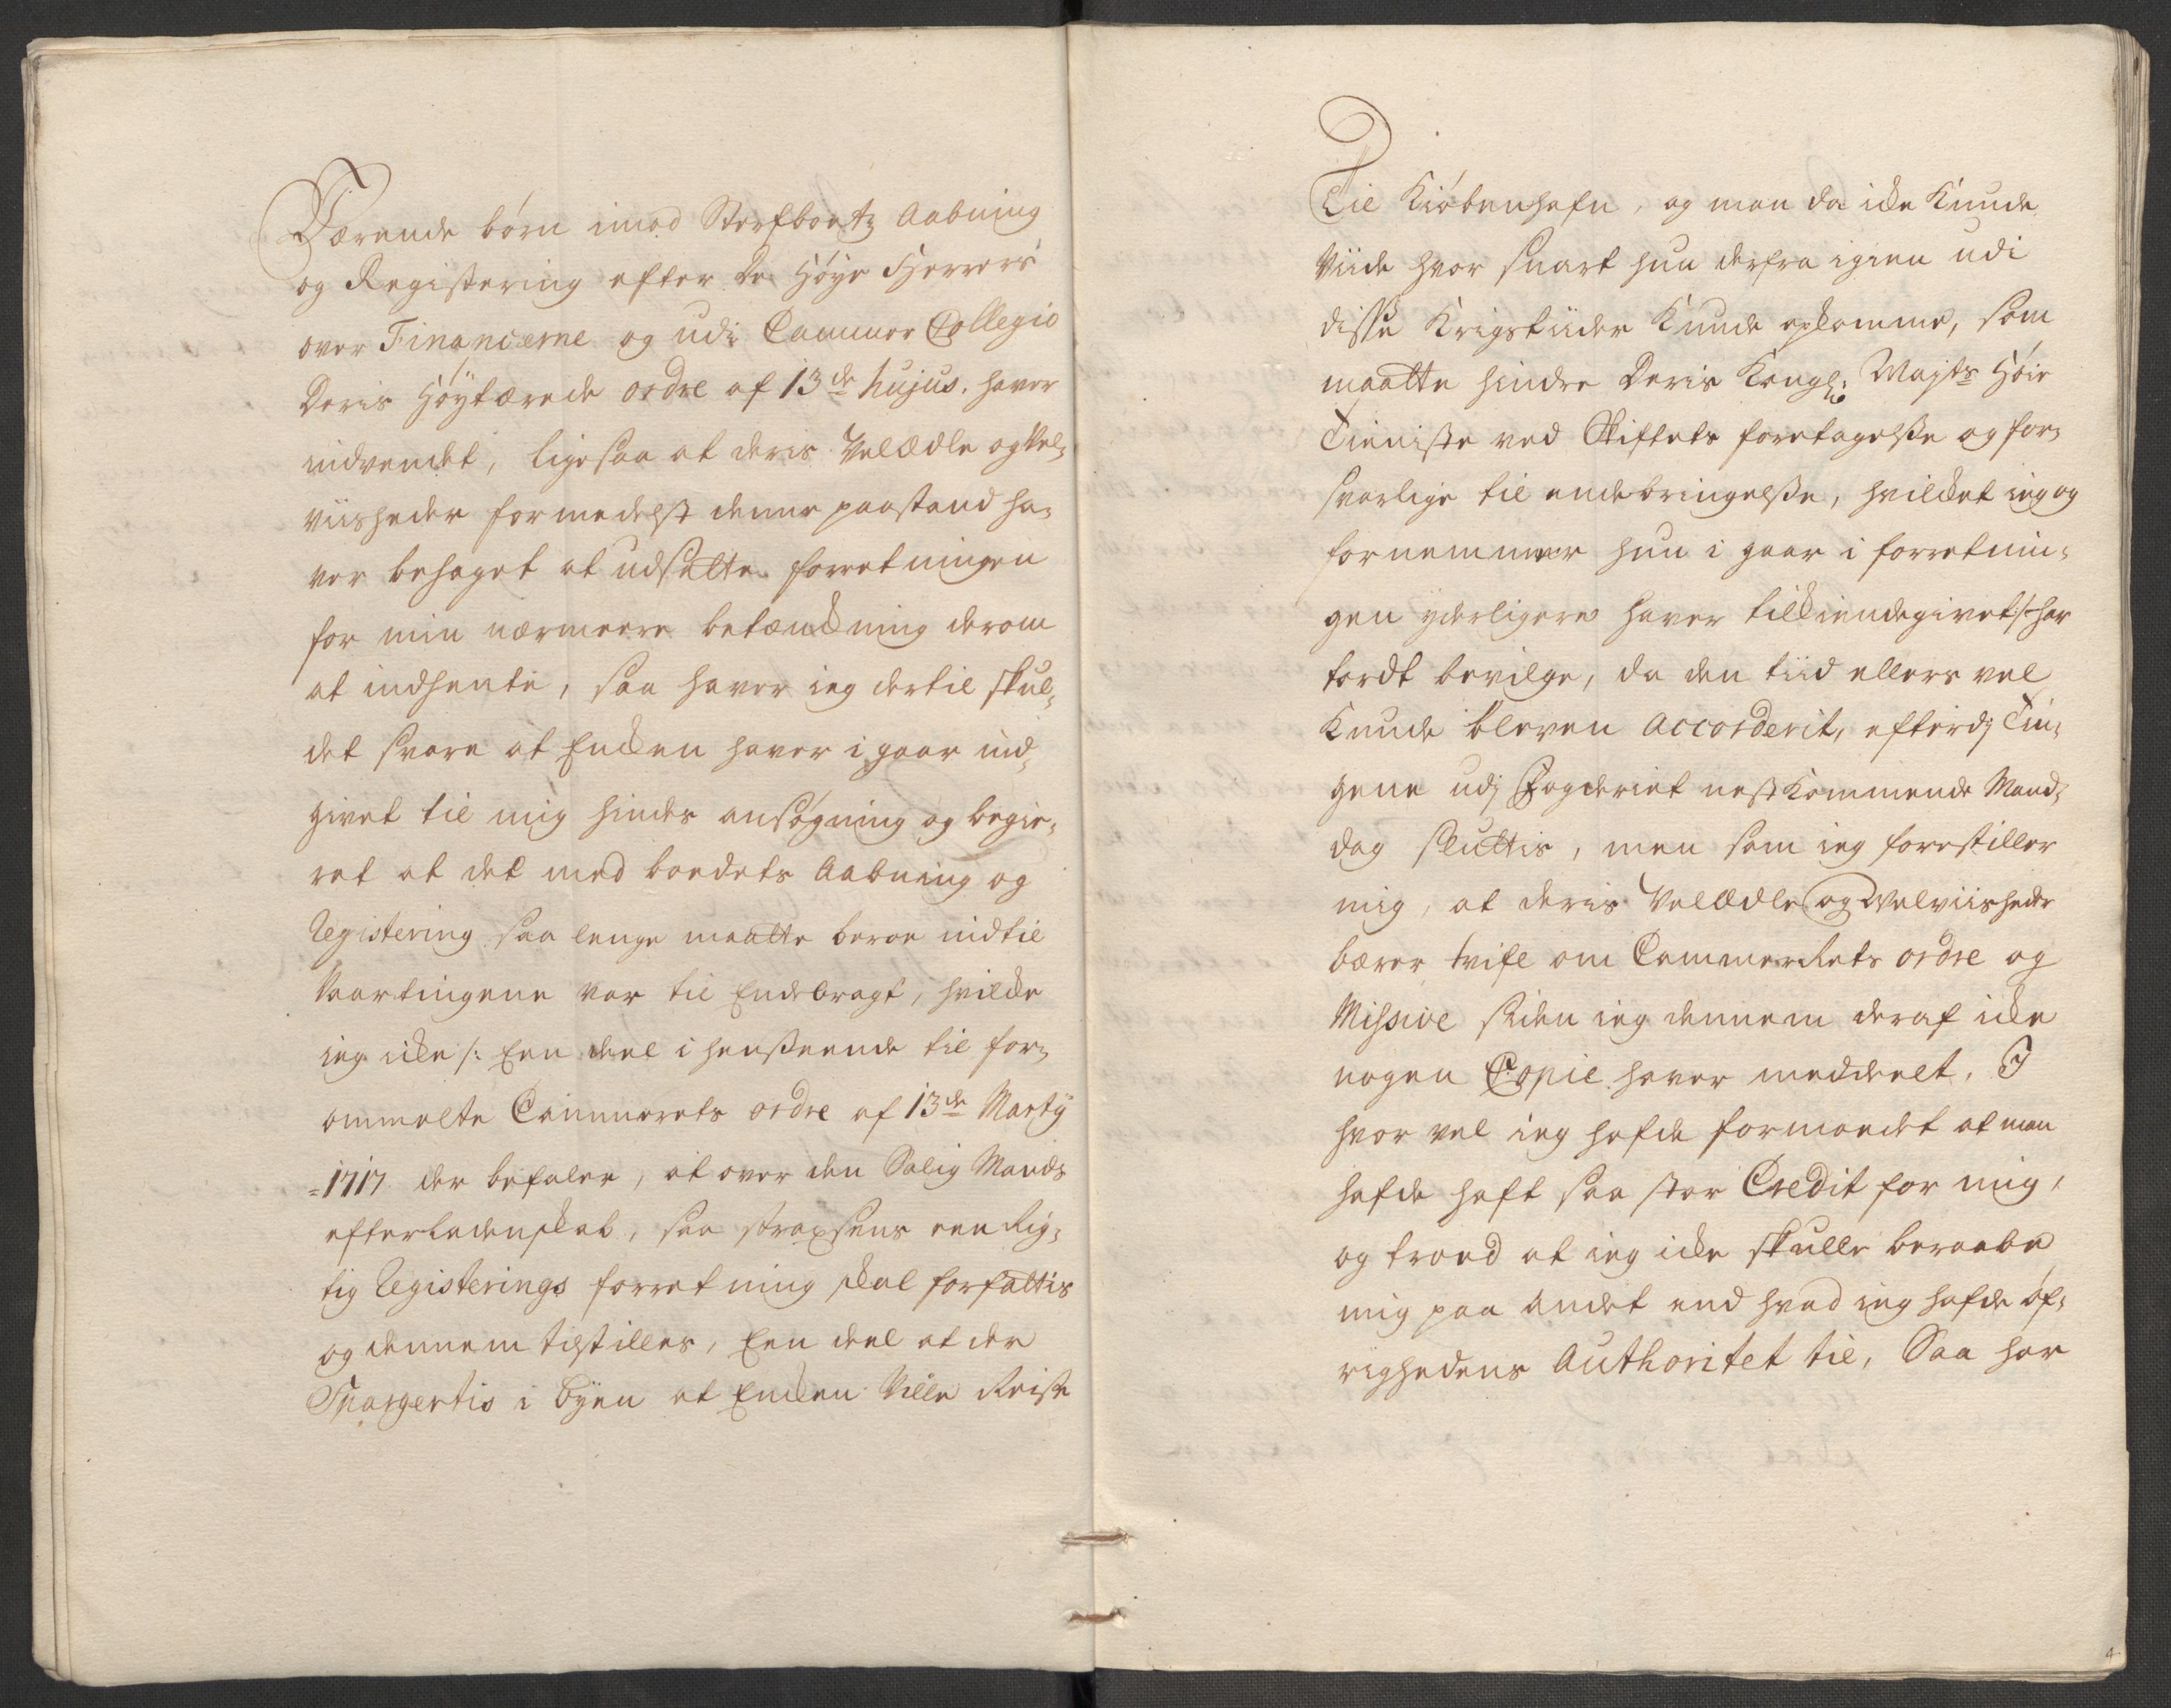 Værende børn imod Sterfboetz Aabning
og Registering efter De Høye Herrers
over Financerne og udi Cammer Collegio
Deris Høytærede ordre af 13de hujus. haver
indvendt, ligesaa at deris VelÆdle og Vel-
viisheder formedelst denne paastand ha-
ver behaget at udsætte forretningen
for min nærmeere betænckning derom
at indhente, saa haver ieg dertil skul-
det svare at Encken haver i gaar ind-
givet til mig hindes ansøgning og begie-
ret at det med boedets Aabning og
Registering saa lenge maatte beroe indtil
Vaartingene var til Endebragt, hvilcke
ieg icke /: Een deel i henseende til for-
ommelte Cammerets ordre af 13de Martÿ
=1717 der befaler, at over den Salig Mands
efterladenskab, saa straxsens een Rig-
tig Registerings forretning skal forfattis
og dennem tilstilles, Een deel at der
Spargertis i Byen at Encken Ville Reise
Til Kiøbenhafn, og man da icke Kunde
Viide hvor snart hun derfra igien udi
disse Krigstiider Kunde opkomme, som
maatte hindre Deris Kongl: Majts Høie
Tieniste ved Skiftets foretagelse og for-
svarlige til endebringelse, hvilcket ieg og
fornemmer hun i gaar i forretnin-
gen yderligere haver tilkiendegivet :/ har
tordt bevilge, da den tiid ellers vel
Kunde bleven Accorderit, efterdj Tin-
gene udj Fogderiet nest Kommende Mand-
dag sluttis, men som ieg forestiller
mig, at deris VelÆdle og Velviisheder
bærer tvifl om Cammerkets ordre og
Missive siden ieg dennem deraf icke
nogen Copie haver meddeelt. I
hvor vel ieg hafde formoedet at man
hafde haft saa stor Credit for mig,
og troed at ieg icke skulle beraabe
mig paa andet end hvad ieg hafde øf-
righedens Authoritet til, Saa har